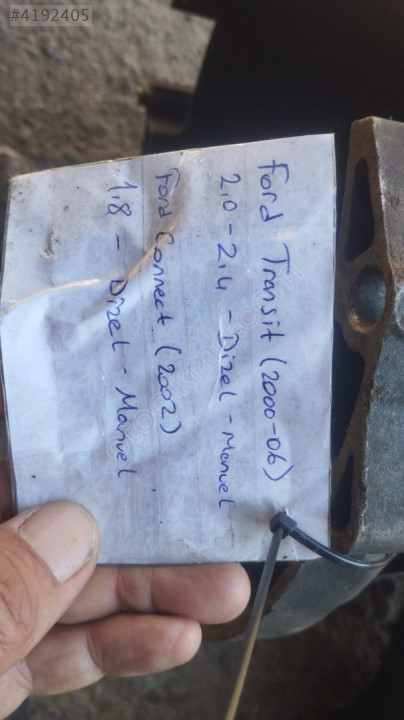 #4192405
Ford Transit (2000-06)
2.0 - 2.4 - Dizel - Manuel
Ford Connect (2002)
1.8 - Dizel - Manuel